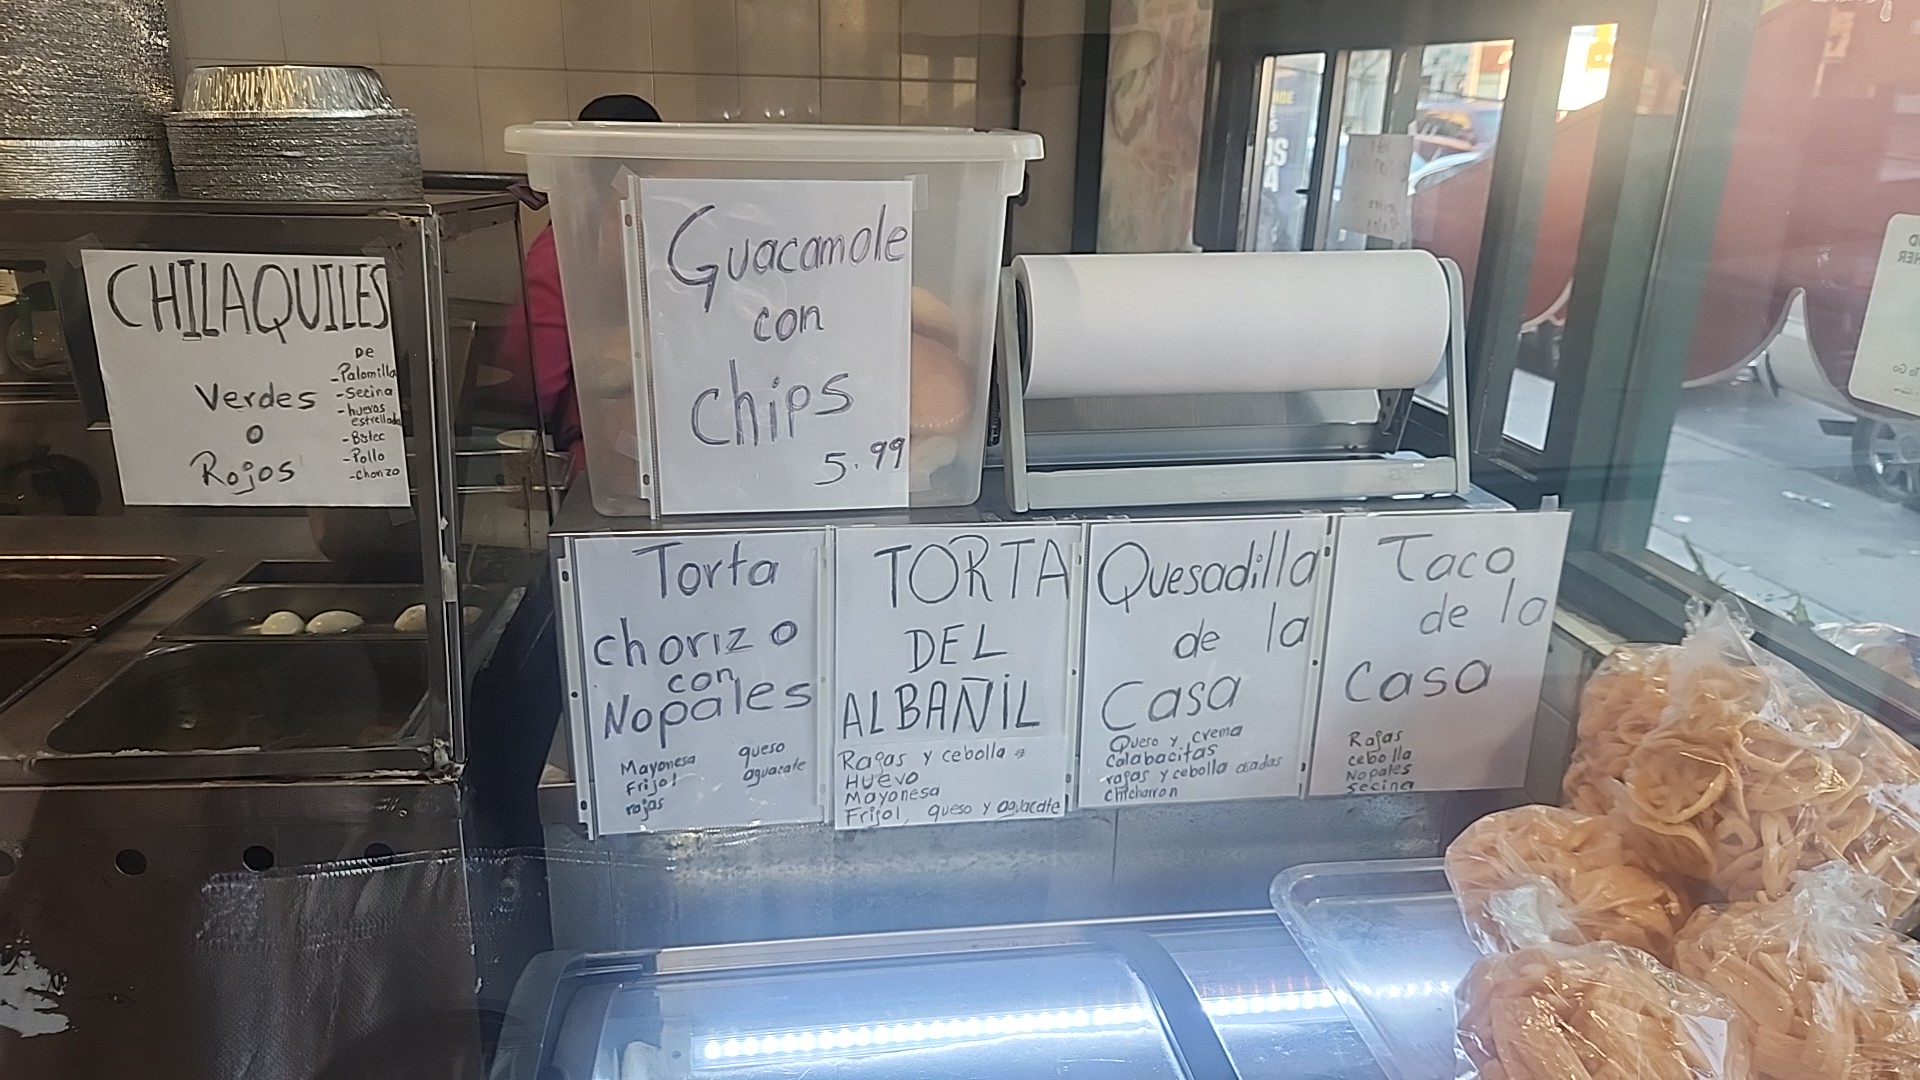 CHILAQUILES
Verdes
o
Rojos
DE
-Palomilla
-Secina
-huevos
estrellados
-Bistec
-Pollo
-chorizo
Guacamole
con
chips
5.99
Torta
chorizo
con
Nopales
Mayonesa
Frijol
rajas
queso
aguacate
TORTA
DEL
ALBAÑIL
Rajas y cebolla
Huevo
Mayonesa
Frijol, queso y aguacate
Quesadilla
de la
Casa
Queso y crema
Calabacitas
rajas y cebolla asadas
chicharron
Taco
de la
Casa
Rajas
cebolla
Nopales
Secina
To Go